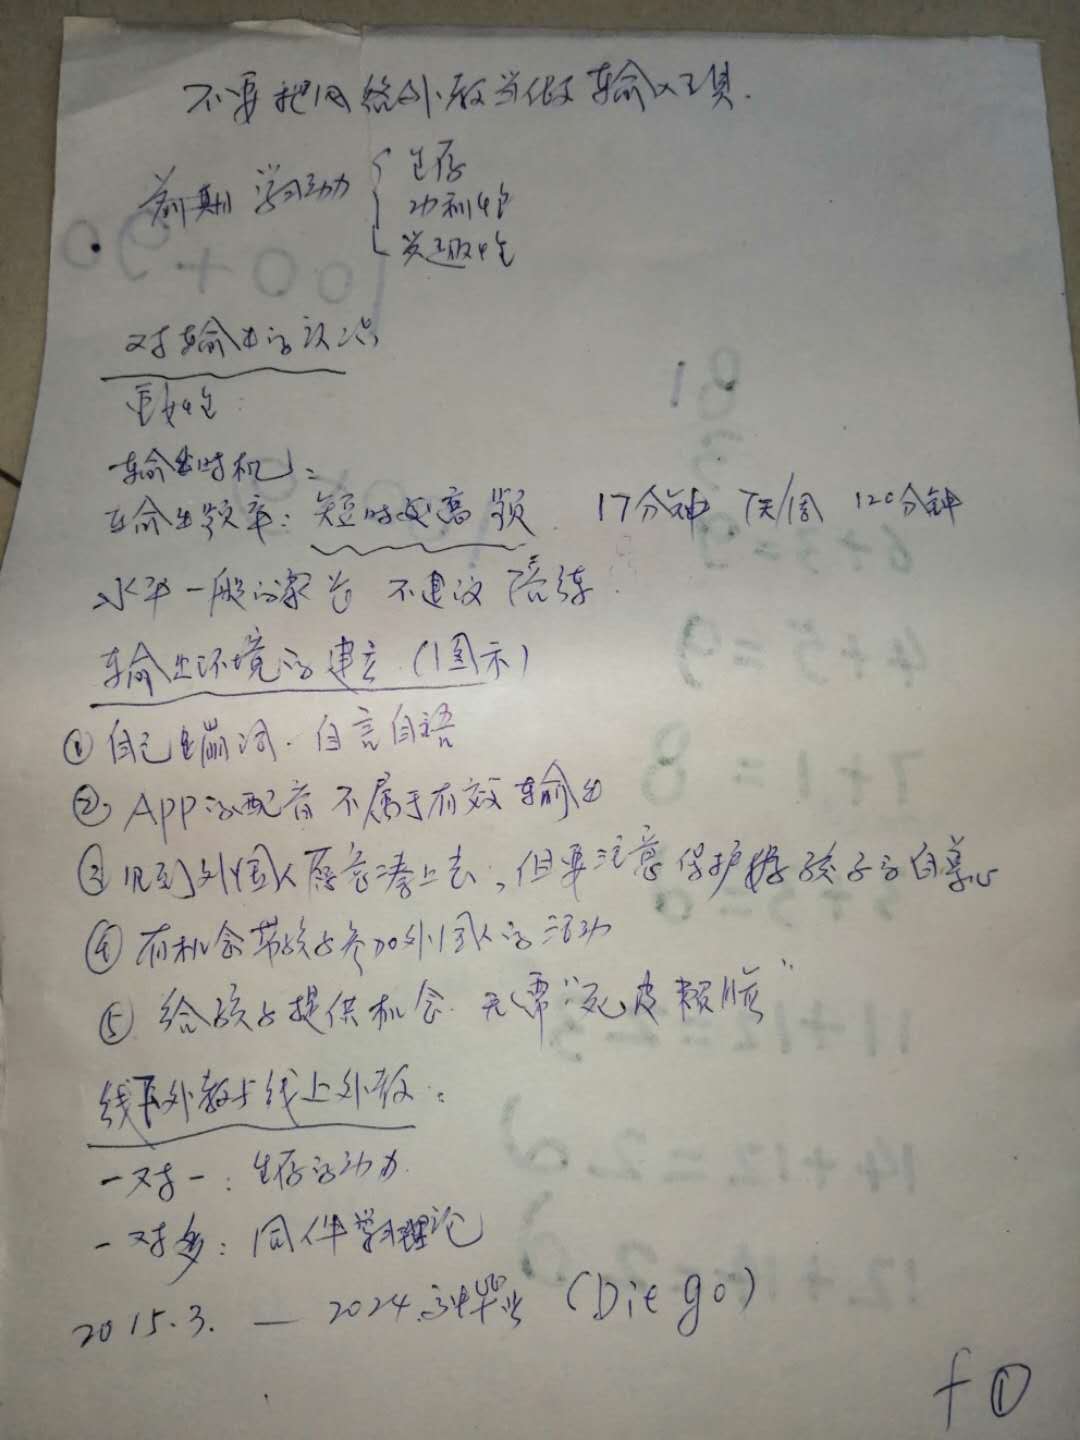 不要把网络外教当做输入工具.
前期 学习动力 { 生存
功利性
兴趣性
对输出的认识
重要性:
输出时机:
输出频率: 短时长高频 17分钟 7天/周 120分钟
水平一般的家长 不建议陪练.
输出环境的建立 (1图示)
① 自己蹦词. 自言自语
② App的配音不属于有效输出
③ 见到外国人愿意凑上去, 但要注意保护好孩子的自尊心
④ 有机会带孩子参加外国人的活动
⑤ 给孩子提供机会. 无需"死皮赖脸"
线下外教与线上外教:
一对一: 生存的动力.
一对多: 同伴学习理论
2015.3. — 2024.高中毕业 (Diego)
f ①